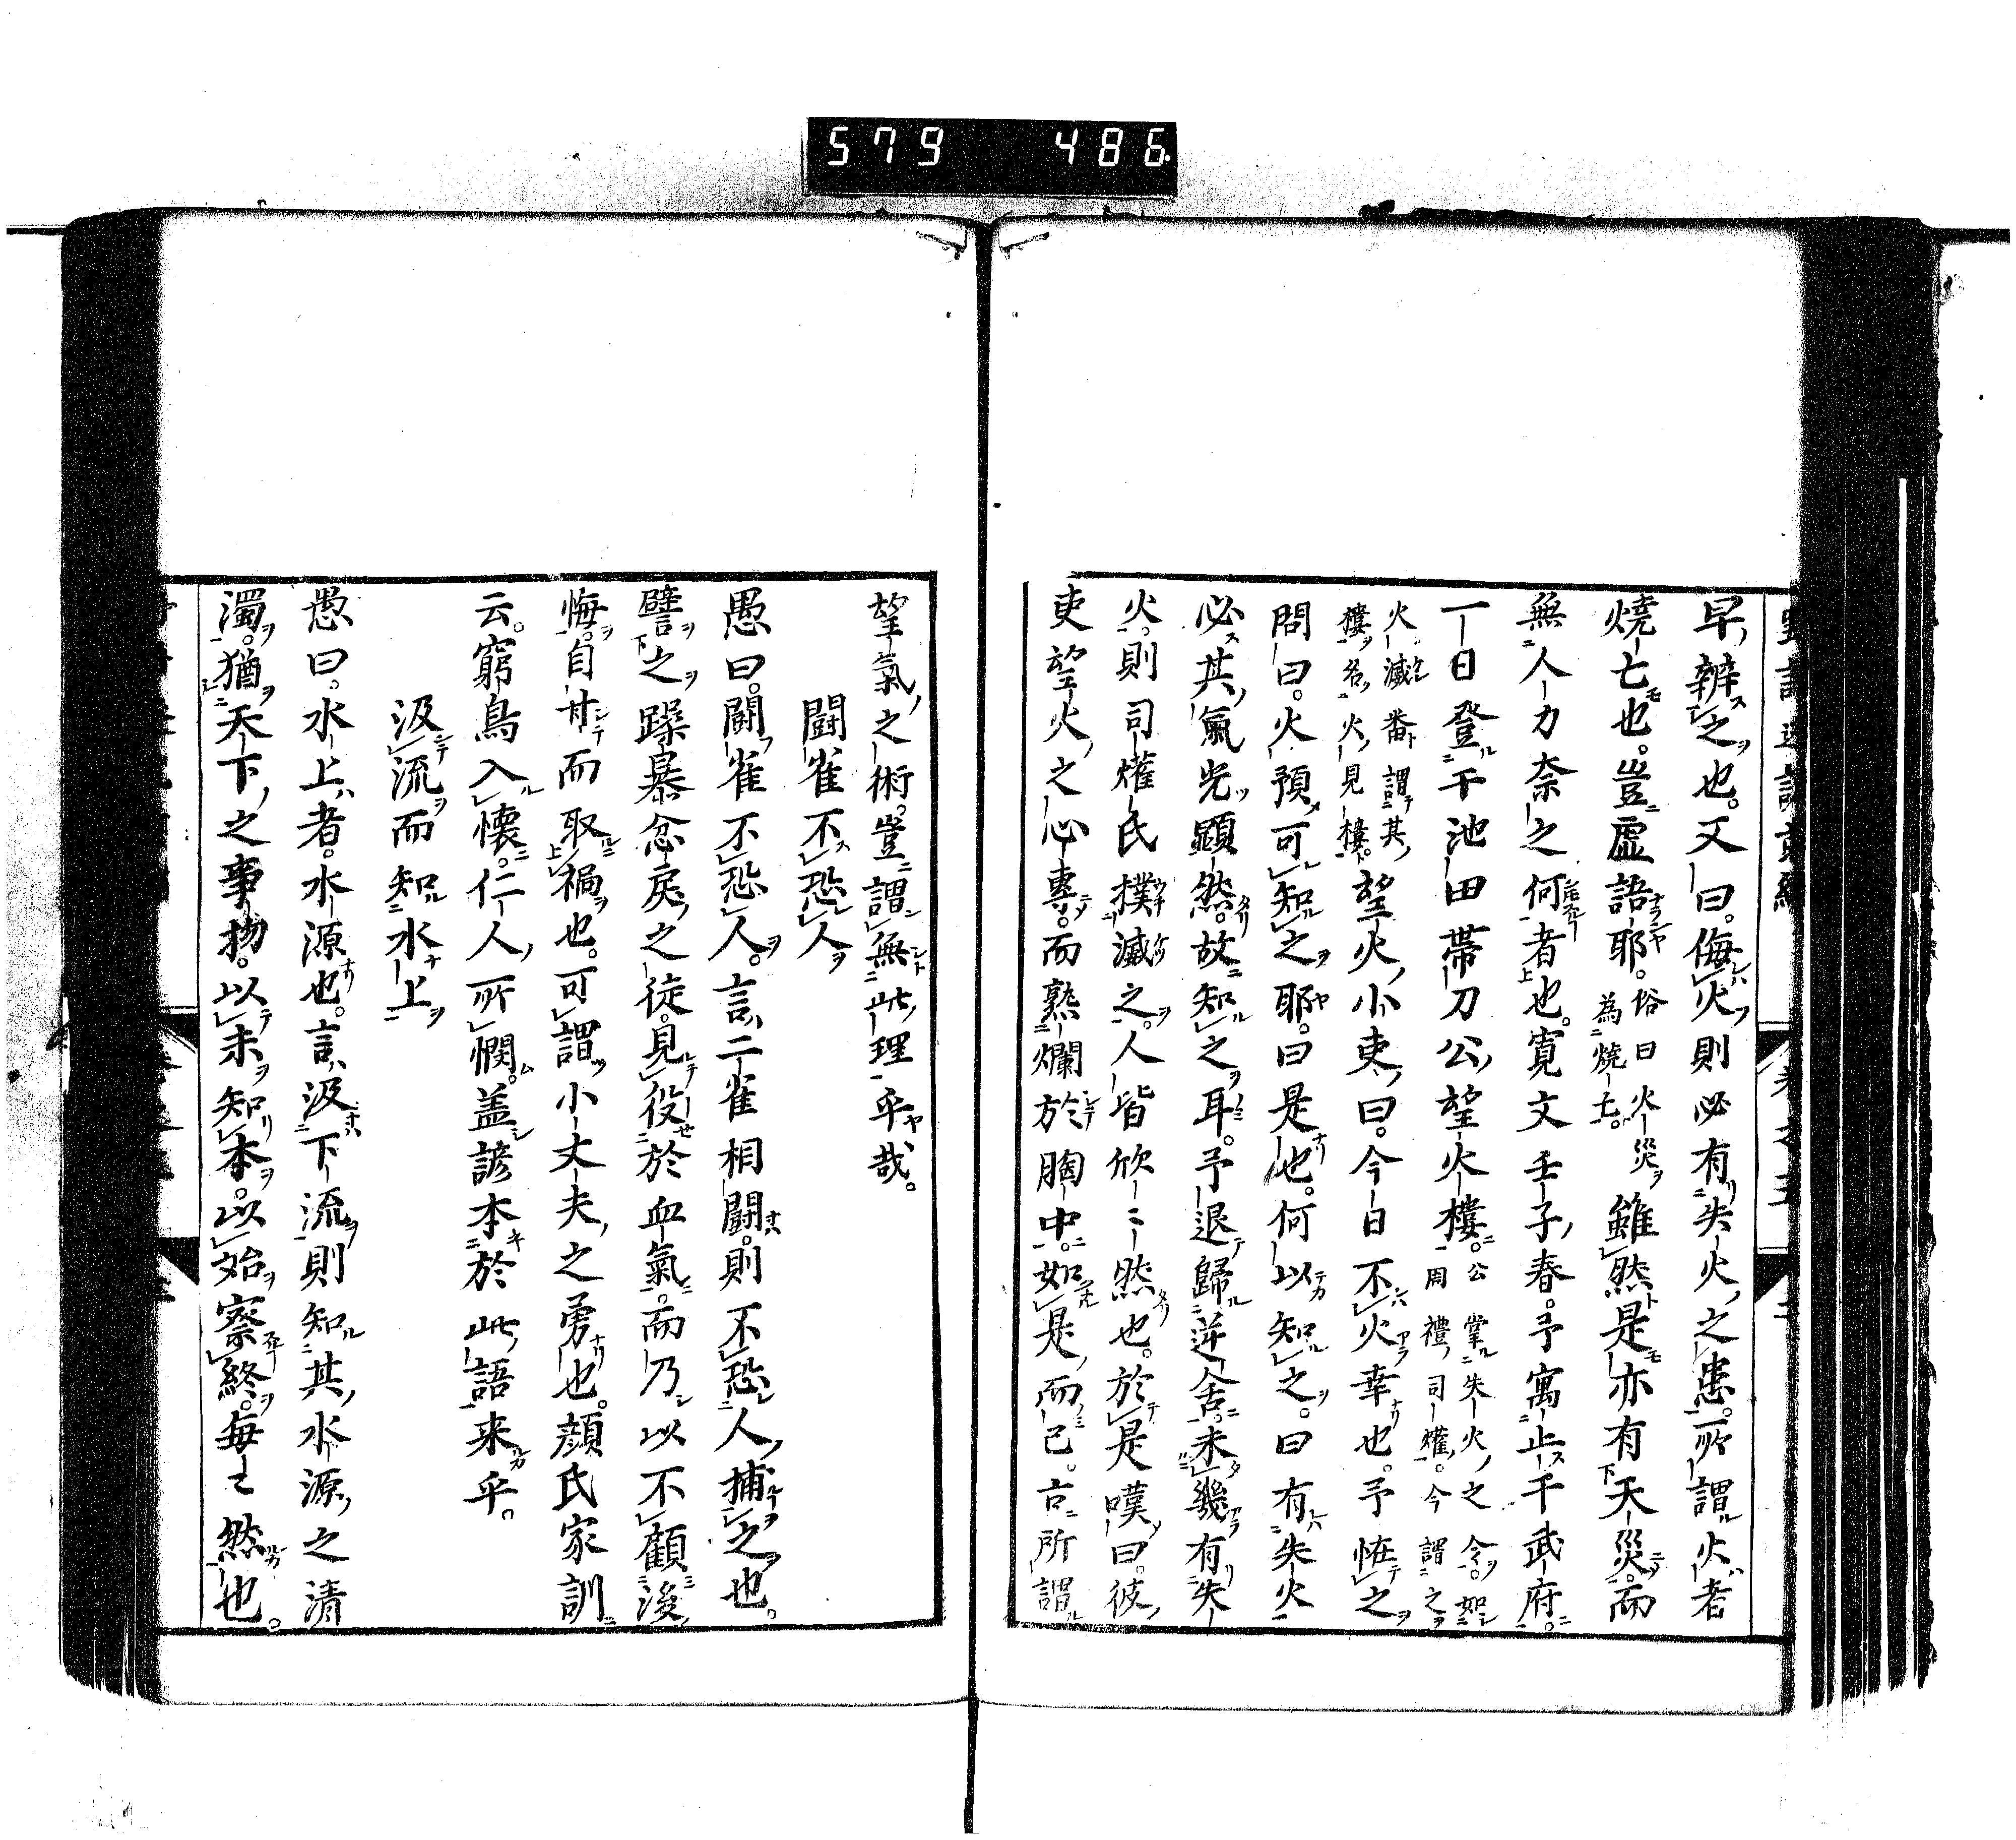 579 486
早辨之也。又曰。侮火則必有失火之患。所謂火者
燒亡也。豈虚語耶。俗曰火災為燒亡。雖然是亦有天災。而
無人力奈之何者也。寛文壬子春。予寓止于武府。
一日登于池田帶刀公望火樓。公掌失火之令。如周禮司爟。今謂之
火滅番謂其樓名火見樓。望火小吏曰。今日不火幸也。予恠之
問曰。火預可知之耶。曰是也。何以知之。曰有失火
必其氣先顕然。故知之耳。予退歸逆舎。未幾有失
火。則司爟氏撲滅之。人皆欣々然也。於是嘆曰。彼
吏望火之心專。而熟爛於胸中。如是而已。古所謂
望氣之術。豈謂無此理乎哉。
鬪雀不恐人
愚曰。鬪雀不恐人。言二雀相鬪。則不恐人捕之也。
譬之躁暴忿戻之徒。見役於血氣。而乃以不顧後
悔。自甘而取禍也。可謂小丈夫之勇也。顔氏家訓
云。窮鳥入懷。仁人所憫。盖諺本於此語来乎。
汲流而知水上
愚曰。水上者。水源也。言汲下流則知其水源之清
濁。猶天下之事物。以末知本。以始察終。毎々然也。